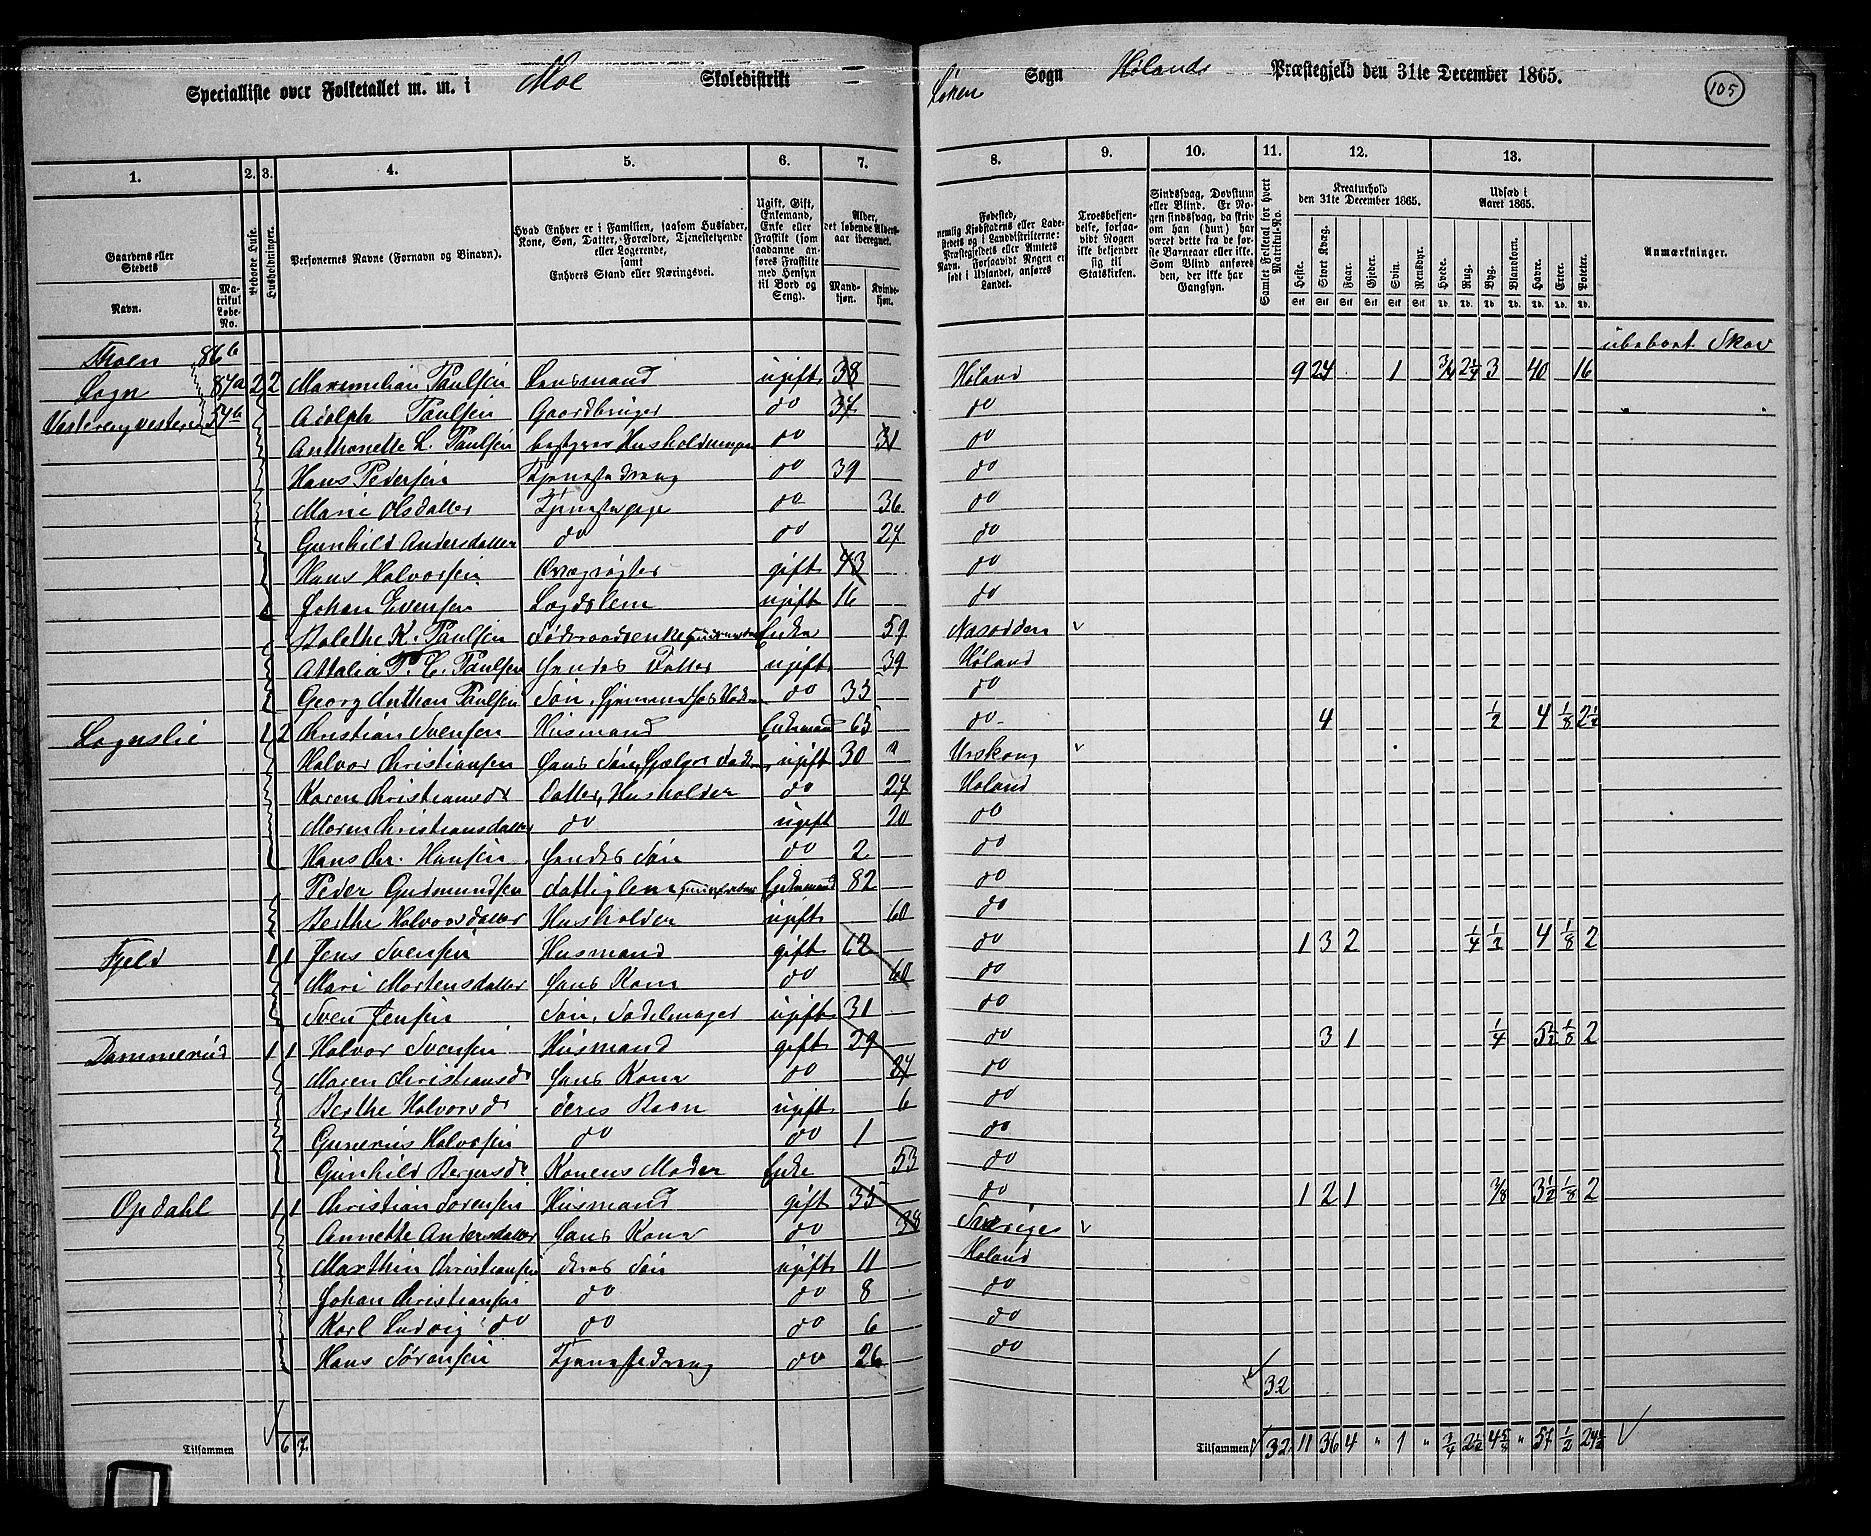 Specialliste over Folketallet m. m. i Moe Skoledistrikt Løken Sogn Hølands Præstegjeld den 31te December 1865. 105
1. 2. 3. 4. 5. 6. 7. 8. 9. 10. 11. 12. 13.
Gaardens eller Stedets Navn. Matrikul Løbe-No. Beboede Huse. Husholdninger. Personernes Navne (Fornavn og Binavn). Hvad Enhver er i Familien, saasom Husfader, Kone, Søn, Datter, Forældre, Tjenestetyende eller Logerende, samt Enhvers Stand eller Næringsvei. Ugift, Gift, Enkemand, Enke eller Fraskilt (som saadanne anføres Fraskilte med Hensyn til Bord og Seng). Alder, det løbende Alders-aar iberegnet. Mandkjøn. Kvindekjøn.
Fødested, nemlig Kjøbstadens eller Ladestedets og i Landdistrikterne: Præstegjeldets eller Amtets Navn. Forsaavidt Nogen er født i Udlandet, anføres Landet. Troesbekjendelse, forsaavidt Nogen ikke bekjender sig til Statskirken. Sindssvag, Døvstum eller Blind. Er Nogen sindssvag, da skriv om han (hun) har været dette fra de første Barneaar eller ikke. Som Blind anføres den, der ikke har Gangsyn. Samlet Folketal for hvert Matrikul-No. Kreaturhold den 31te December 1865. Udsæd i Aaret 1865. Anmærkninger.
Heste. Stort Kvæg. Faar. Gjeder. Svin. Rensdyr. Hvede. Rug. Byg. Blandkorn. Havre. Erter. Poteter.
86b ubeboet Skov
Sogn 87a 2 2 Maximilian Paulsen Lensmand ugift 38 Høland 9 24 1 3/4 2 1/4 3 40 16
57b Adolph Paulsen Gaardbruger do 37 do
Anthonette L. Paulsen bestyrer Husholdningen do 31 do
Hans Pedersen Tjenestedreng do 39 do
Marie Olsdatter Tjenestepige do 36 do
Gunhild Andersdatter do do 27 do
Hans Halvorsen Qvægrøgter gift 43 do
Johan Evensen Logdslem ugift 16 do
K. Paulsen Føderaadsenke Enke 59 Næsodden
Attalia P. C. Paulsen Hendes Datter ugift 39 Høland
Georg Anthon Paulsen Søn, hjemme hos Moderen do 35 do
Lognslie 1 2 Christian Svensen Husmand Enkemand 65 do 4 1/2 4 1/8 2 1/2
Halvor Christiansen Hans Søn, hjælper Faderen ugift 30 Urskoug
Karen Christiansd Datter, Husholder do 27 Høland
Maren Christiansdatter do ugift 20 do
Hans Chr. Hansen Hendes Søn do 2 do
Peder Gudmundsen Fattiglem Enkemand 82 do
Berthe Halvorsdatter Husholder ugift 60 do
Fjeld 1 1 Jens Svensen Husmand gift 62 do 1 3 2 1/4 1/2 4 1/8 2
Mari Mortensdatter Hans Kone do 60 do
Sven Jensen Søn, Sadelmager ugift 31 do
Dammerud 1 1 Halvor Svensen Husmand gift 39 do 3 1 1/4 5 1/2 1/8 2
Maren Christiansd Hans Kone do do
Berthe Halvorsd deres Barn ugift 6 do
Gunerius Halvorsen do do 1 do
Gunhild Bergersd Konens Moder Enke 53 do
Opdahl 1 1 Christian Sørensen Husmand gift 35 do 1 2 1 3/8 3 1/2 1/8 2
Annette Andersdatter Hans Kone do 38 Sverige
Marthin Christiansen deres Søn ugift 11 Høland
Johan Christiansen do do 8 do
Karl Ludvig do do do 6 do
Hans Sørensen Tjenestedreng do 26 do
32
Tilsammen 6 7 Tilsammen 32 11 36 4 " 1 3/4 2 1/2 " 57 1/2 24 1/2